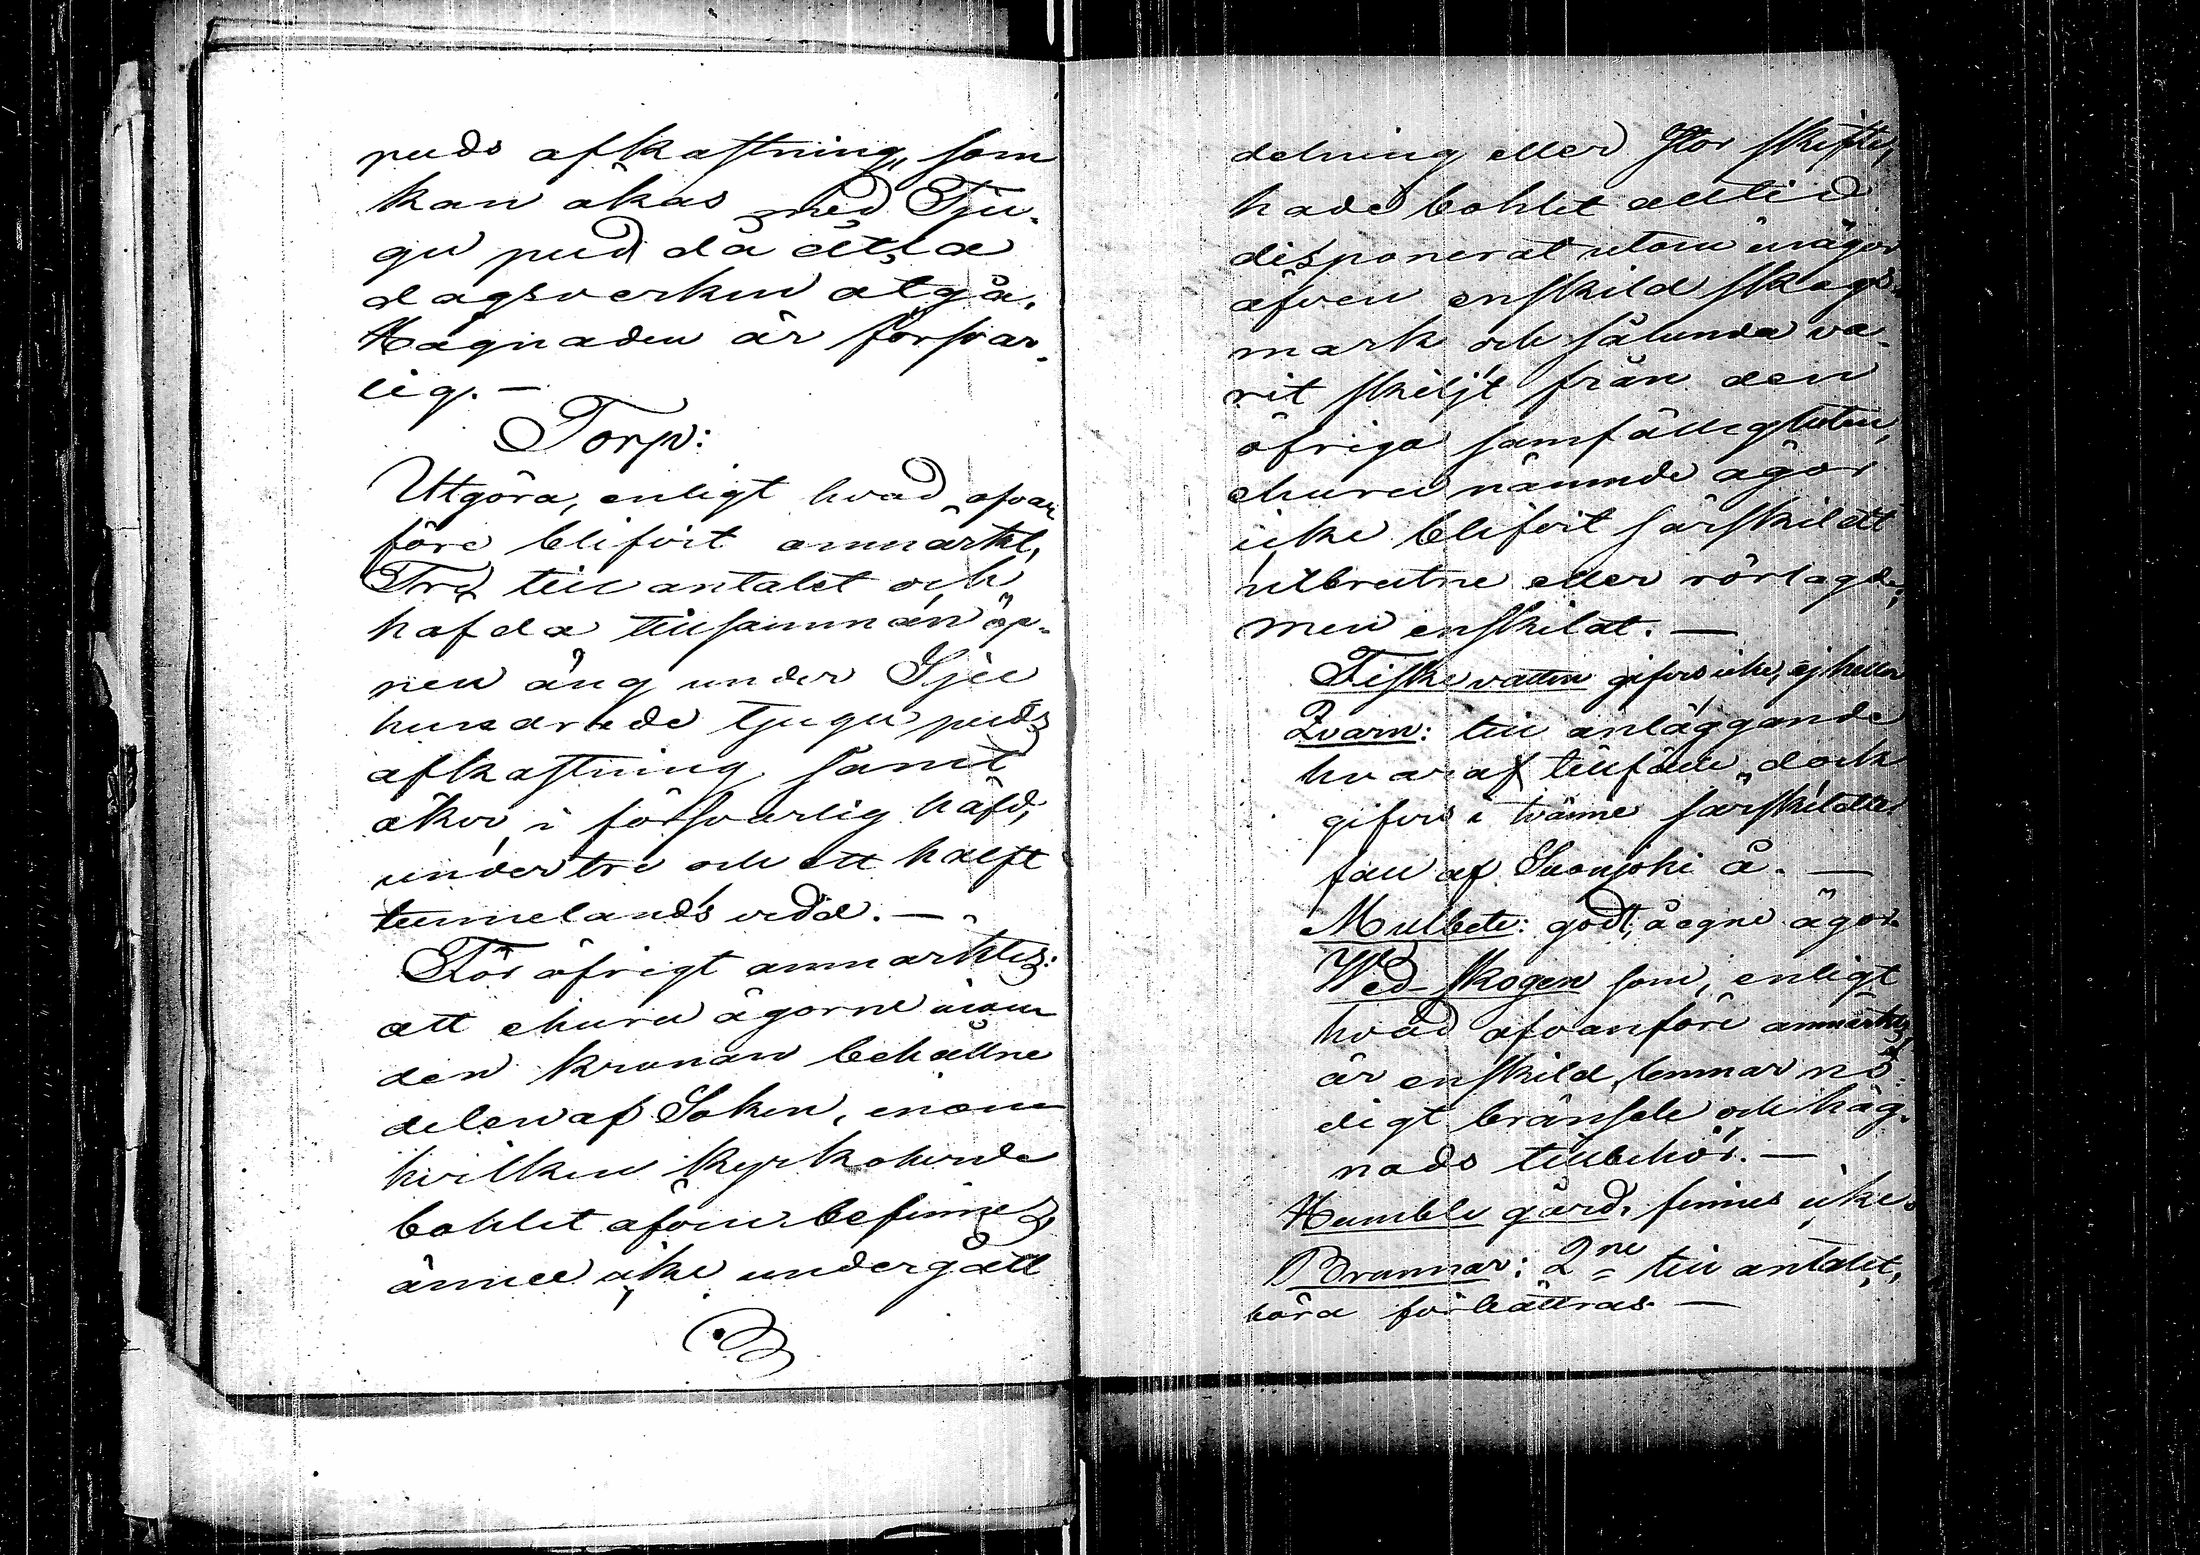 puds afkastning, som
kan ökas med Tju-
gu pud då åtta
dagsverken åtgå.
Hägnaden är försvar-
lig. —
Torp:
Utgöra, enligt hvad ofvan
före blifvit anmärkt,
Tre till antalet och
hafda tillsamman öp-
nen äng under Sju
hundrade tjugu puds
afkastning samt
åker i försvarlig häfd,
under tre och ett halft
tunnelands vidd. —
För öfrigt anmärktes:
att ehuru ägorne inom
den kronan behållne
delen af Soken, inom
hvilken kyrkoherde
bohlet äfven befinnes,
ännu icke undergått
delning eller Stor skifte,
hade bohlet alltid
disponerat utom inägor
äfven enskild skogs-
mark och sålunda va-
rit skiljt från den
öfriga samfälligheten,
ehuru nämnde ägor
icke blifvit särskildt
utbrutne eller rörlagde,
men enskilat. —
Fiskevatten gifves icke, ej heller
Qvarn: till anläggande
hvaraf tillfälle dock
gifves i tvänne särskildte
fall af Suonjoki å. —
Mulbete: godt, å egne ägor.
Wed-skogen som, enligt
hvad ofvanföre anmärktes,
är enskild, lemnar nö-
digt bränsle och häg-
nads tillbehör. —
Humble gård, finnes icke.
Brunnar: 2ne till antalet,
böra förbättras. —